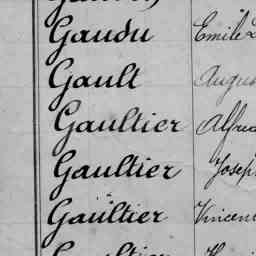 Gaudu Emile
Gault Augus
Gaultier Alfred
Gaultier Josep
Gaultier Vincent
Gaultier